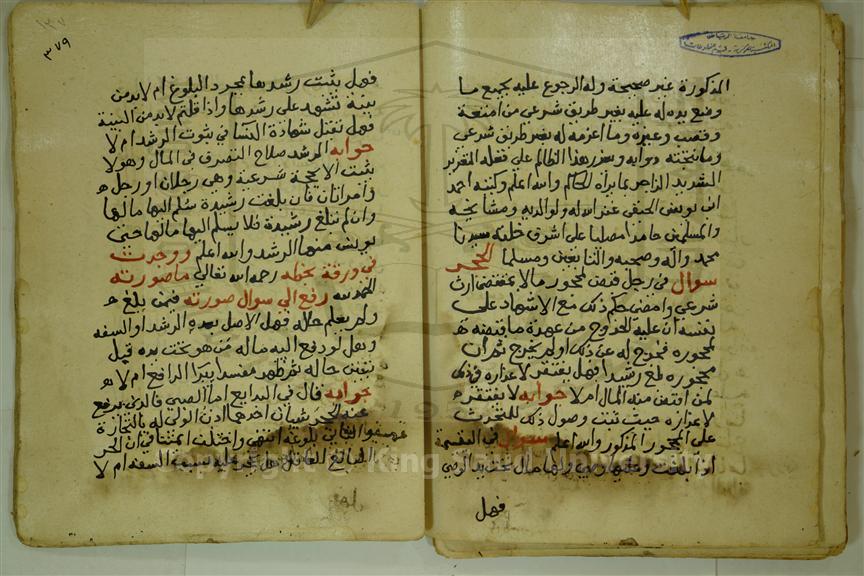 المذكورة غير صحيحة وله الرجوع عليه بجميع ما
وضع يده له عليه بغير طريق شرعي من امتعة
وقصب وغيره وما اغرمه له بغير طريق شرعي
هذا الظالم على فعله التعزير
الشديد الزاجر بما يراه الحاكم والله اعلم وكتبه احمد
ابن يونس الحنفي غفر الله له ولوالديه ومشايخه
والمسلمين حامدا مصليا على اشرف خلقه سيدنا
محمد واله وصحبه والتابعين ومسلما الحجر
سوال في رجل قبض لمحجوره مالا بمقتضى ارث
شرعي وامضى حكم ذلك مع الاشهاد على
نفسه ان عليه الخروج من عهدة ما قبضه
لمحجوره فخرج له عن ذلك او لم يخرج ثم ان
محجوره بلغ رشيدا فهل يفتقر لاعذاره
لمن اقبض منه المال ام لا جوابه لا يفتقر
لاعذاره حيث ثبت وصول ذلك للمتحدث
على المحجور المذكور والله اعلم سوال في اليتيمة
اذا بلغت وعليها وصي ولها مال تحت يد الوصي
فهل
٣٧٩
فهل يثبت رشدها بمجرد البلوغ ام لابد من
بينة تشهد على رشدها واذا قلتم لابد من البينة
فهل تقبل شهادة النسا في ثبوت الرشد ام لا
جوابه الرشد صلاح التصرف في المال وهو لا
يثبت الا بحجة شرعية وهي رجلان او رجل
وامراتان فان بلغت رشيدة سلم اليها مالها
وان لم تبلغ رشيدة فلا يسلم اليها مالها حتى
يونس منها الرشد والله اعلم ووجدت
في ورقة بخطه رحمه الله تعالى ما صورته
الحمد لله رفع الي سوال صورته فيمن بلغ
ولم يعلم حاله فهل الاصل بعده الرشد او السفه
وهل لو دفع اليه ماله من هو تحت يده قبل
تبين حاله ثم ظهر مفسدا يبرا الدافع ام لا
جوابه قال في البدايع اما الصبي فالذي يرفع
عنه الحجر شيان احدهما اذن الولي له بالتجارة
والثاني بلوغه انتهى واختلف ايمتنا في ان الحر
البالغ العاقل هل يحجر عليه بسبب السفه ام لا